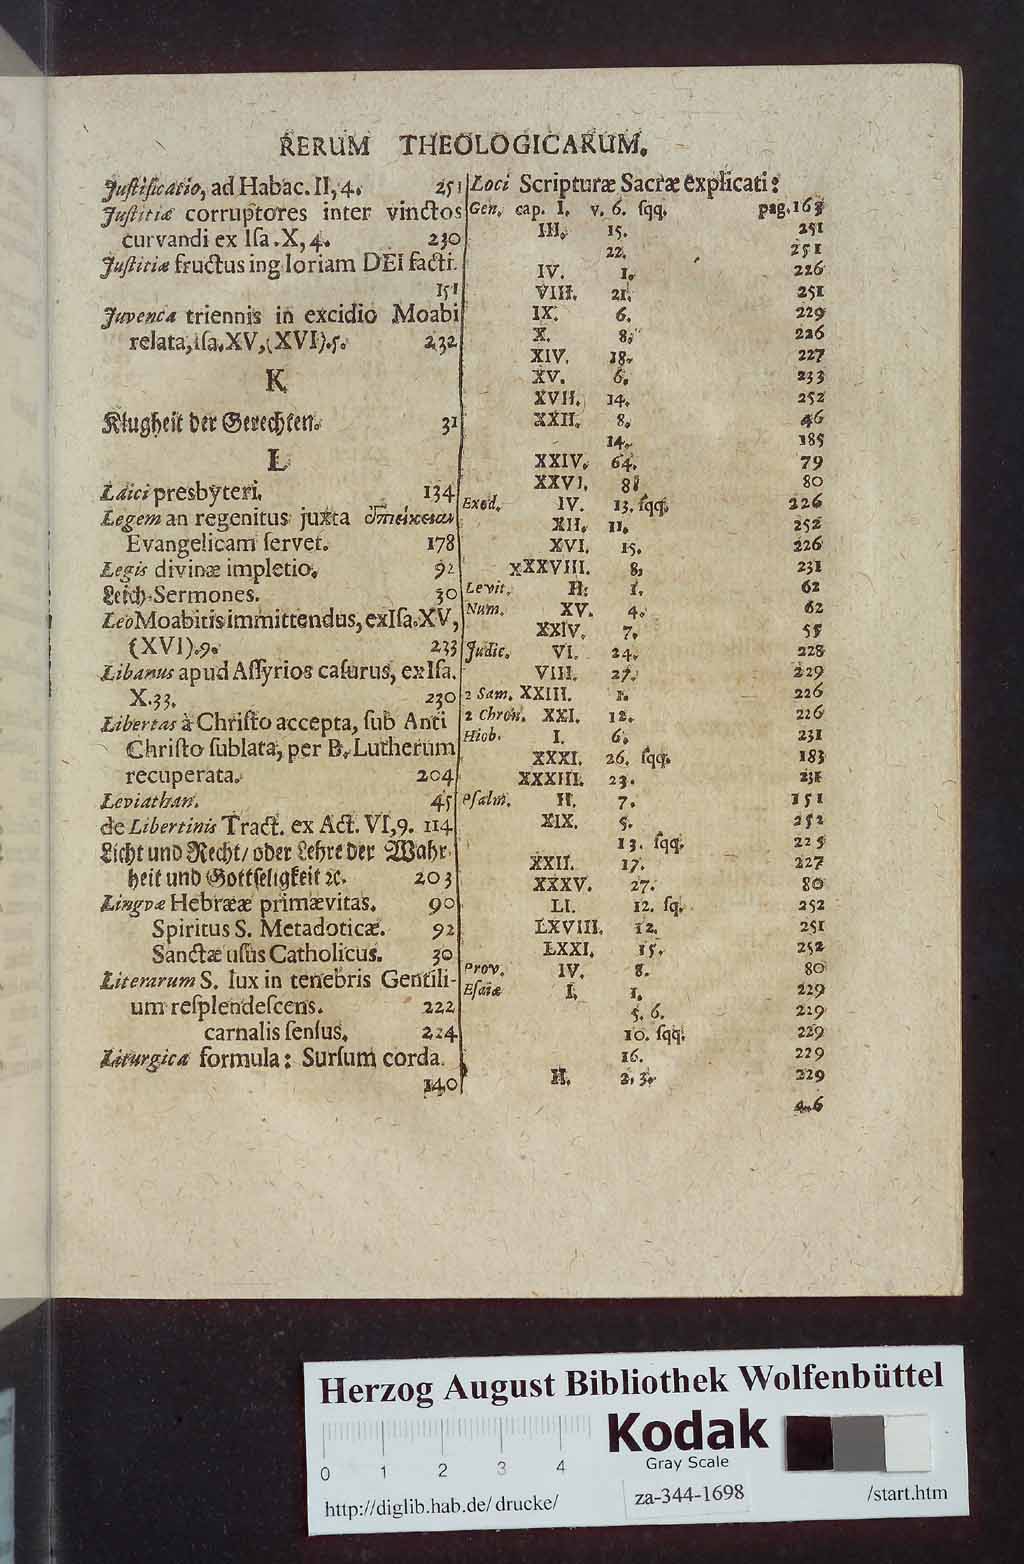 RERUM THEOLOGICARUM.
Justificatio, ad Habac. II, 4. 251
Justitiæ corruptores inter vinctos
curvandi ex Isa. X, 4. 230
Justitiæ fructus in gloriam DEI facti.
151
Juvenca triennis in excidio Moabi
relata, isa. XV, (XVI). 5. 232
K
Klugheit der Gerechten. 31
L
Laici presbyteri. 134
Legem an regenitus juxta
Evangelicam servet. 178
Legis divinæ impletio. 92
Leich-Sermones. 30
Leo Moabitis immittendus, ex Isa. XV,
(XVI). 9. 233
Libanus apud Assyrios casurus, ex Isa.
X. 33. 230
Libertas à Christo accepta, sub Anti
Christo sublata, per B. Lutherum
recuperata. 204
Leviathan. 45
de Libertinis Tract. ex Act. VI, 9. 114
Licht und Recht / oder Lehre der Wahr
heit und Gottseligkeit ꝛc. 203
Lingvæ Hebrææ primævitas. 90
Spiritus S. Metadoticæ. 92
Sanctæ usus Catholicus. 30
Literarum S. lux in tenebris Gentili-
um resplendescens. 222
carnalis sensus. 224
Liturgica formula: Sursum corda.
140
Loci Scripturæ Sacræ explicati:
Gen. cap. I. v. 6. sqq. pag. 163
III. 15. 251
22. 251
IV. 1. 226
VIII. 21. 251
IX. 6. 229
X. 8. 226
XIV. 18. 227
XV. 6. 233
XVII. 14. 252
XXII. 8. 46
14. 185
XXIV. 64. 79
XXVI. 8 80
Exod. IV. 13. sqq. 226
XII. 11. 252
XVI. 15. 226
XXXVIII. 8, 231
Levit. II. 1. 62
Num. XV. 4. 62
XXIV. 7. 55
Judic. VI. 24. 228
VIII. 27. 229
2 Sam. XXIII. 1. 226
2 Chron. XXI. 12. 226
Hiob. I. 6. 231
XXXI. 26. sqq. 183
XXXIII. 23. 231
Psalm. II. 7. 151
XIX. 5. 252
13. sqq. 225
XXII. 17. 227
XXXV. 27. 80
LI. 12. sq. 252
LXVIII. 12. 251
LXXI. 15. 252
Prov. IV. 8. 80
Esaiæ I. 1. 229
5. 6. 229
10. sqq. 229
16. 229
II. 2, 3. 229
4. 6
Herzog August Bibliothek Wolfenbüttel
Kodak
Gray Scale
0 1 2 3 4
http://diglib.hab.de/drucke/ za-344-1698 /start.htm